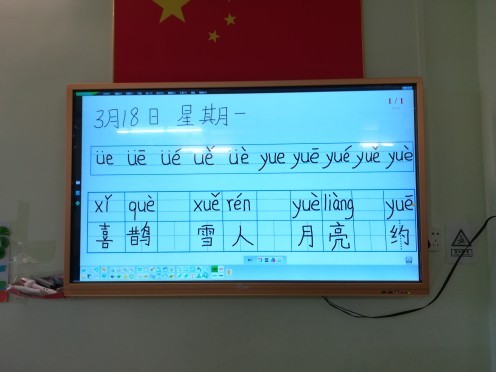 3月18日 星期一
1/1
üe üē üé üě üè yue yuē yué yuě yuè
xǐ què xuě rén yuè liàng yuē
喜鹊 雪人 月亮 约